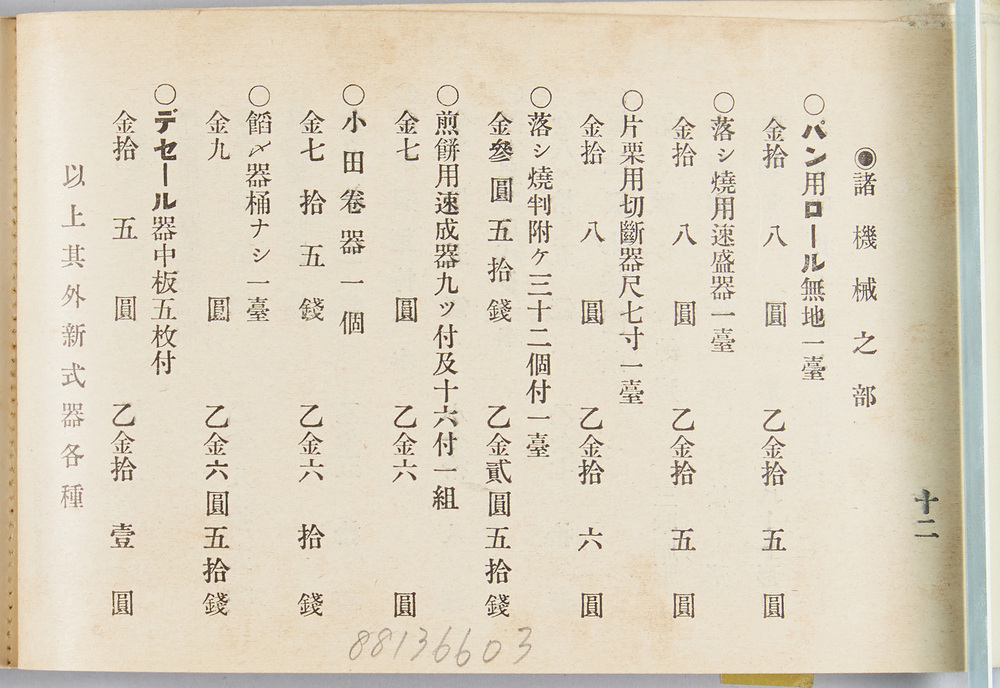 十二
◉諸機械之部
○パン用ロール無地一臺
金拾八圓 乙金拾五圓
○落シ燒用速盛器一臺
金拾八圓 乙金拾五圓
○片栗用切斷器尺七寸一臺
金拾八圓 乙金拾六圓
○落シ燒判附ケ三十二個付一臺
金參圓五拾錢 乙金貳圓五拾錢
○煎餅用速成器九ツ付及十六付一組
金七圓 乙金六圓
○小田卷器一個
金七拾五錢 乙金六拾錢
○餡〆器桶ナシ一臺
金九圓 乙金六圓五拾錢
○デセール器中板五枚付
金拾五圓 乙金拾壹圓
以上其外新式器各種
88136603